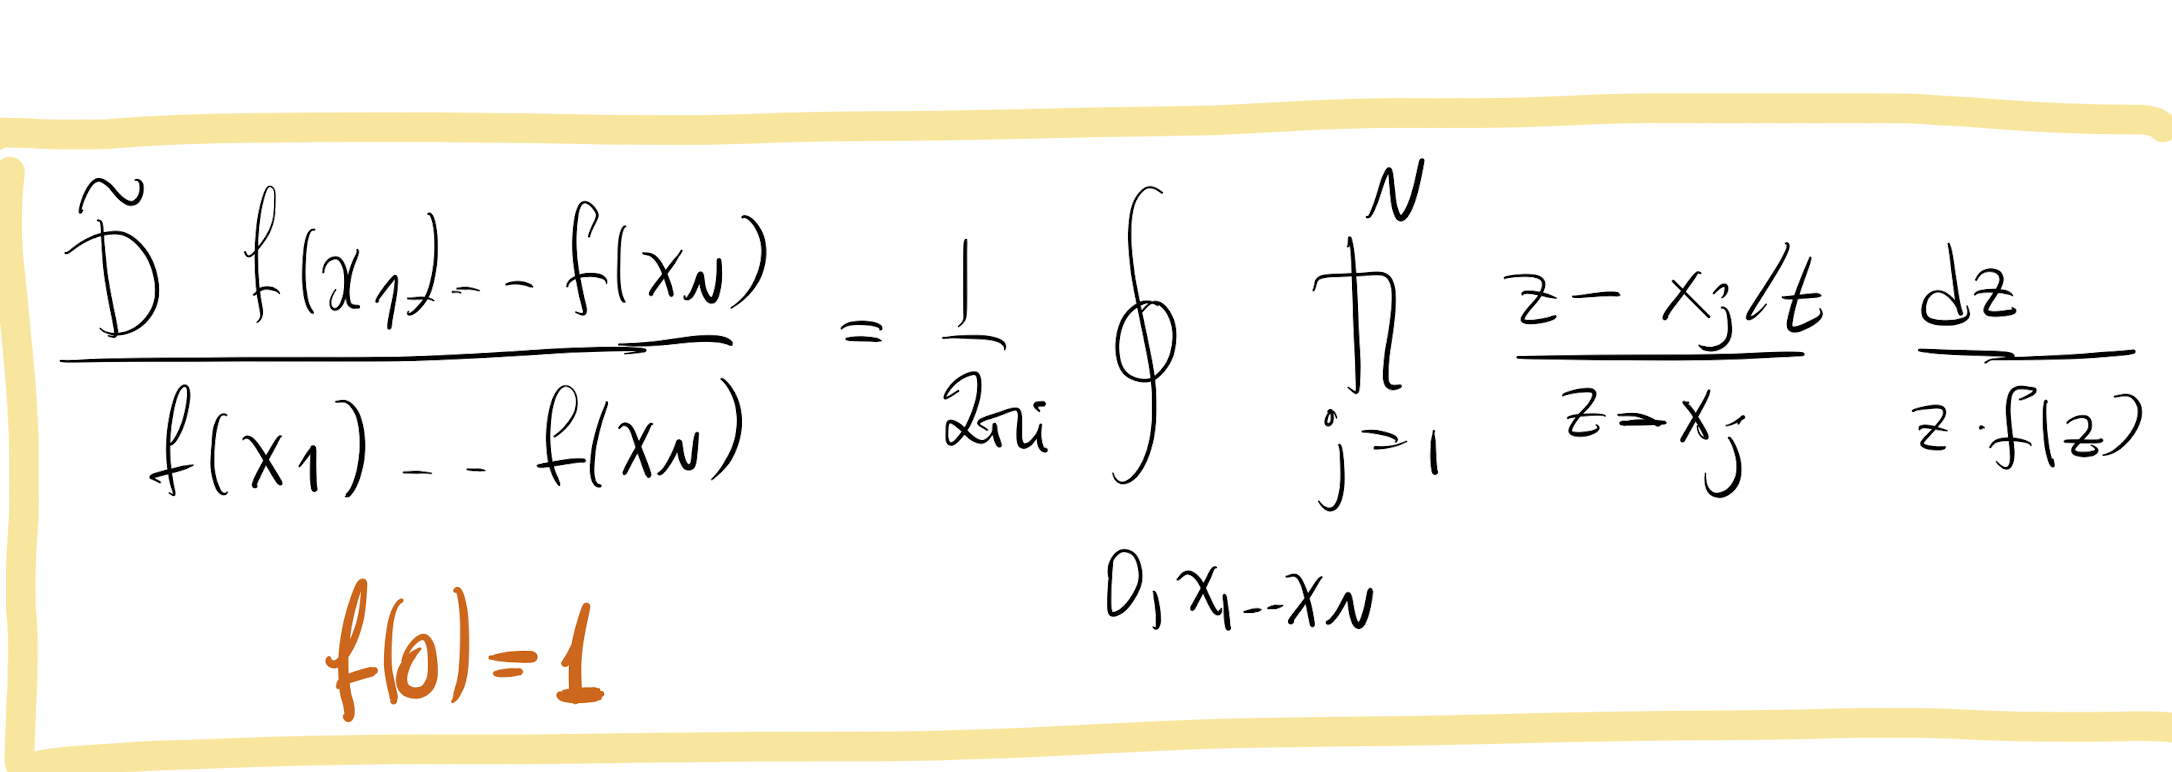 D̃ f(x₁)--f(x_N) / f(x₁)--f(x_N) = 1/2πi ∮_{0, x₁--x_N} ∏_{j=1}^{N} (z - x_j/t)/(z - x_j) dz/(z·f(z))
f(0)=1